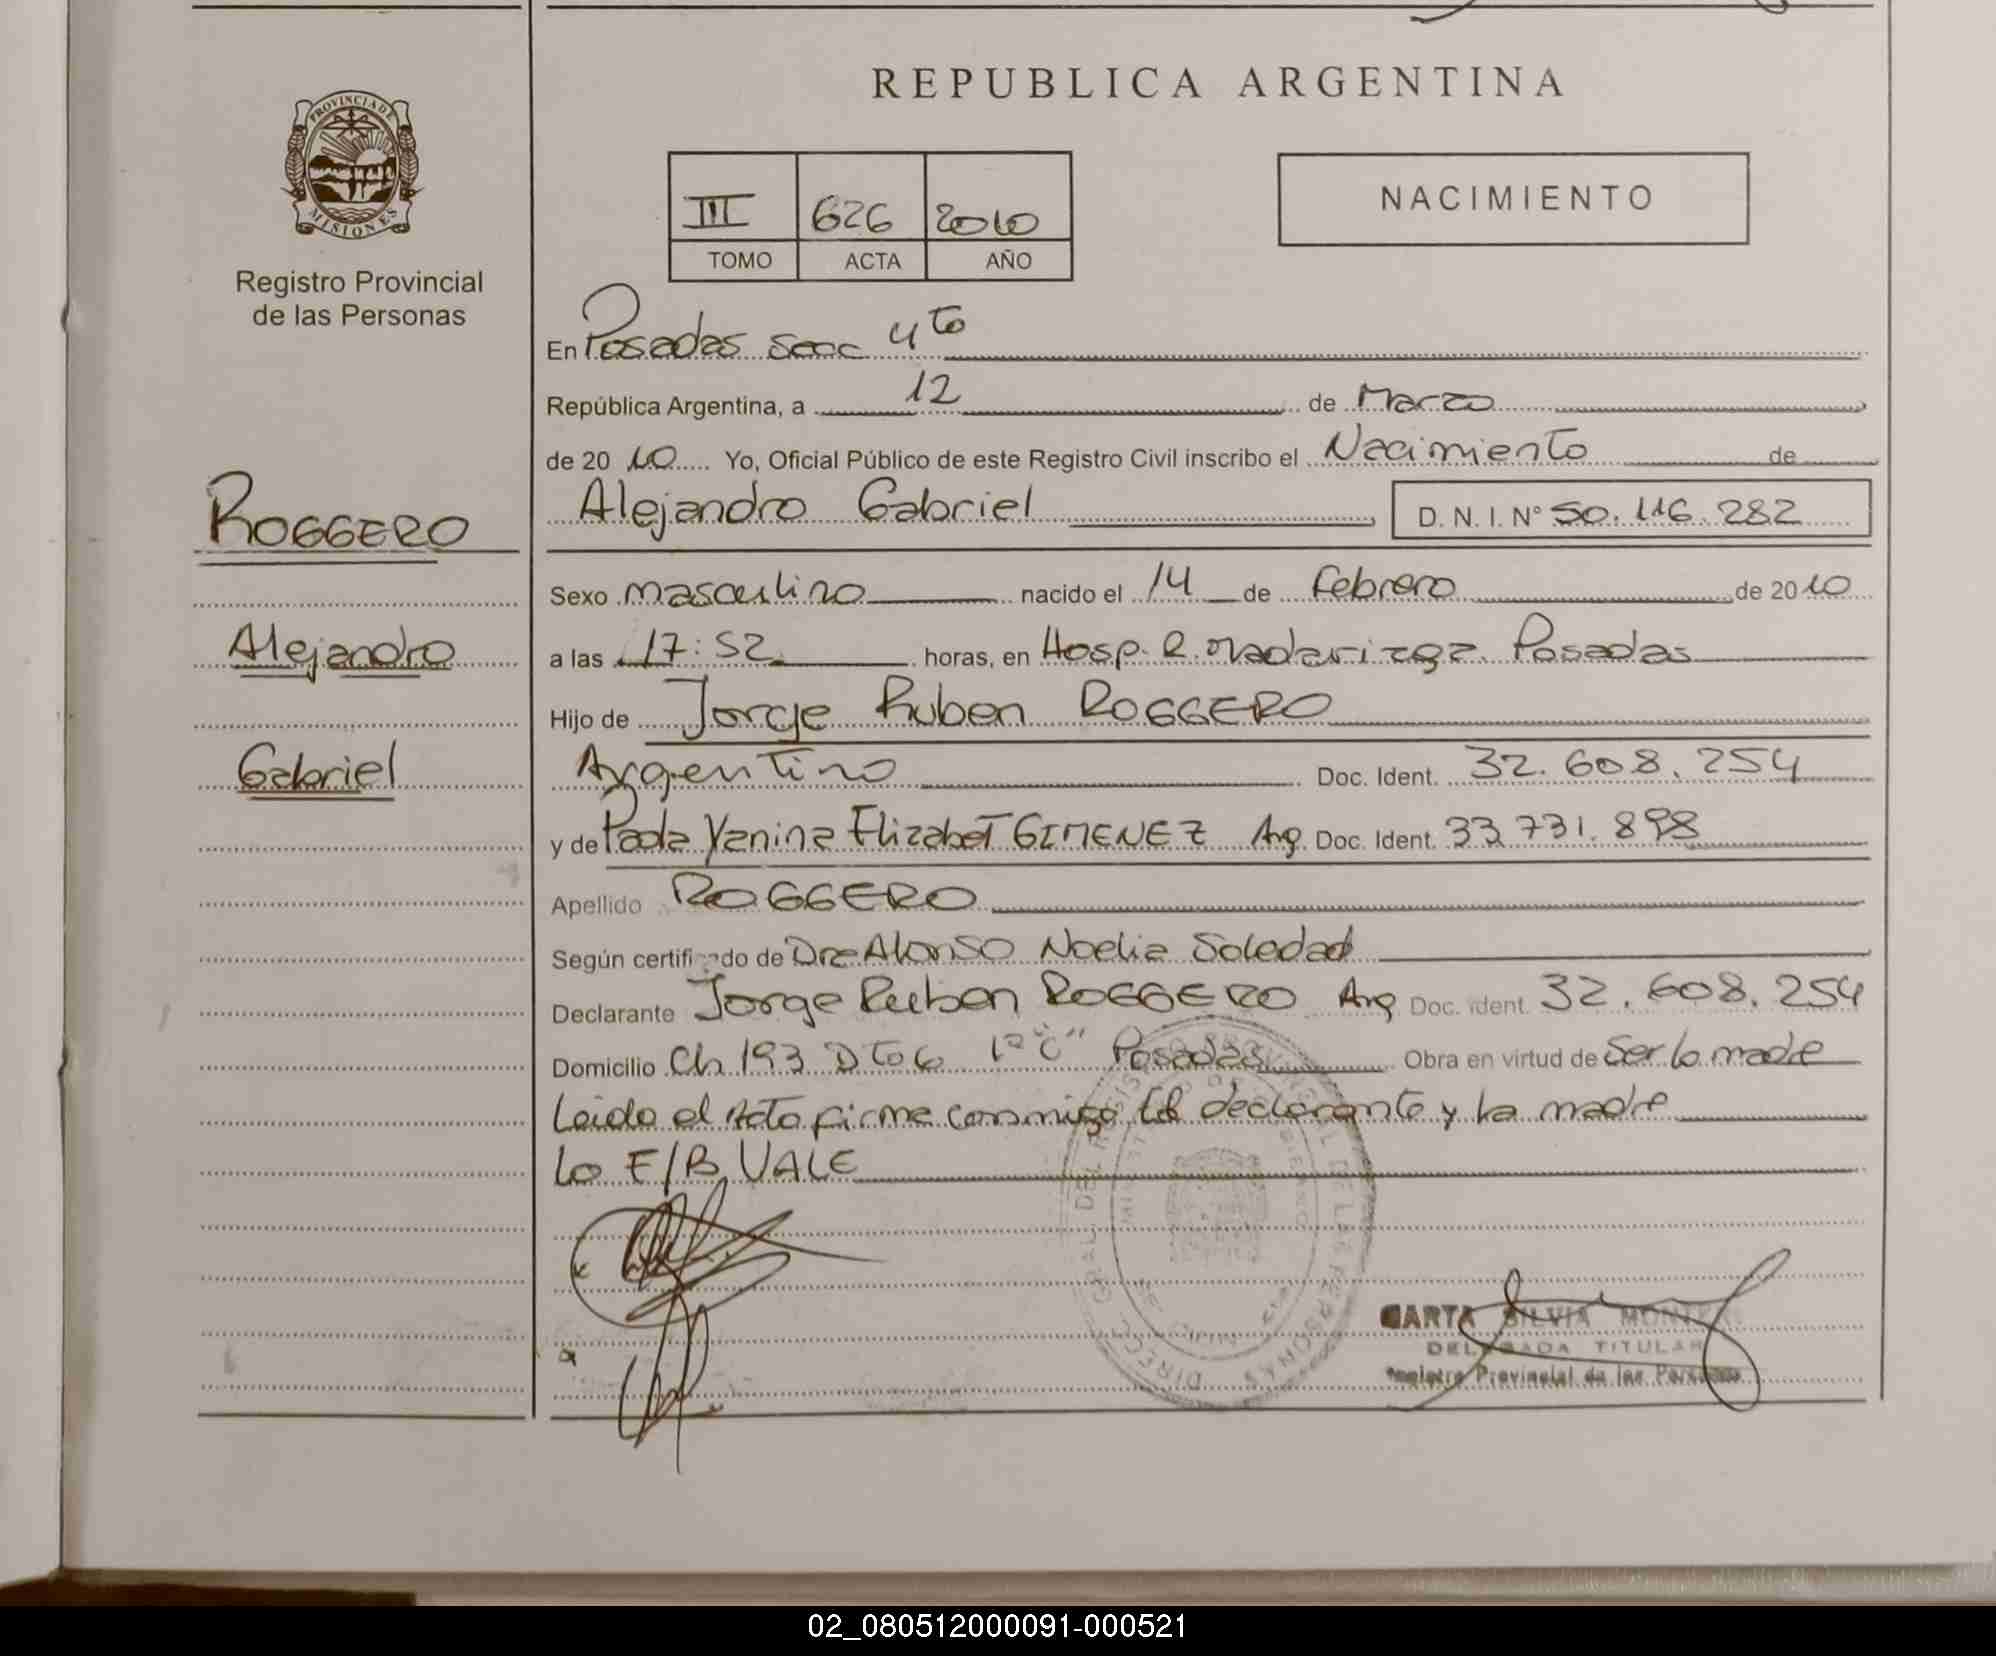 REPUBLICA ARGENTINA
PROVINCIA DE
MISIONES
Registro Provincial
de las Personas
III 626 2010
TOMO ACTA AÑO
NACIMIENTO
En Posadas secc 4to
República Argentina, a 12 de Marzo
de 2010 Yo, Oficial Público de este Registro Civil inscribo el Nacimiento de
ROGGERO
Alejandro
Gabriel
Alejandro Gabriel D. N. I. N° 50.116.282
Sexo masculino nacido el 14 de Febrero de 2010
a las 17:52 horas, en Hosp. R. Madariaga. Posadas
Hijo de Jorge Ruben ROGGERO
Argentino Doc. Ident. 32.608.254
y de Paola Yanina Elizabet GIMENEZ Arg. Doc. Ident. 33.731.898
Apellido ROGGERO
Según certificado de Dra Alonso Noelia Soledad
Declarante Jorge Ruben ROGGERO Arg Doc. ident. 32.608.254
Domicilio Ch 193 Dto 6 1° "C" Posadas Obra en virtud de Ser lo madre
Leido el Acta firma conmigo el declarante y la madre
Lo E/B VALE
SILVIA
DELEGADA TITULAR
Registro Provincial de las Personas
02_080512000091-000521